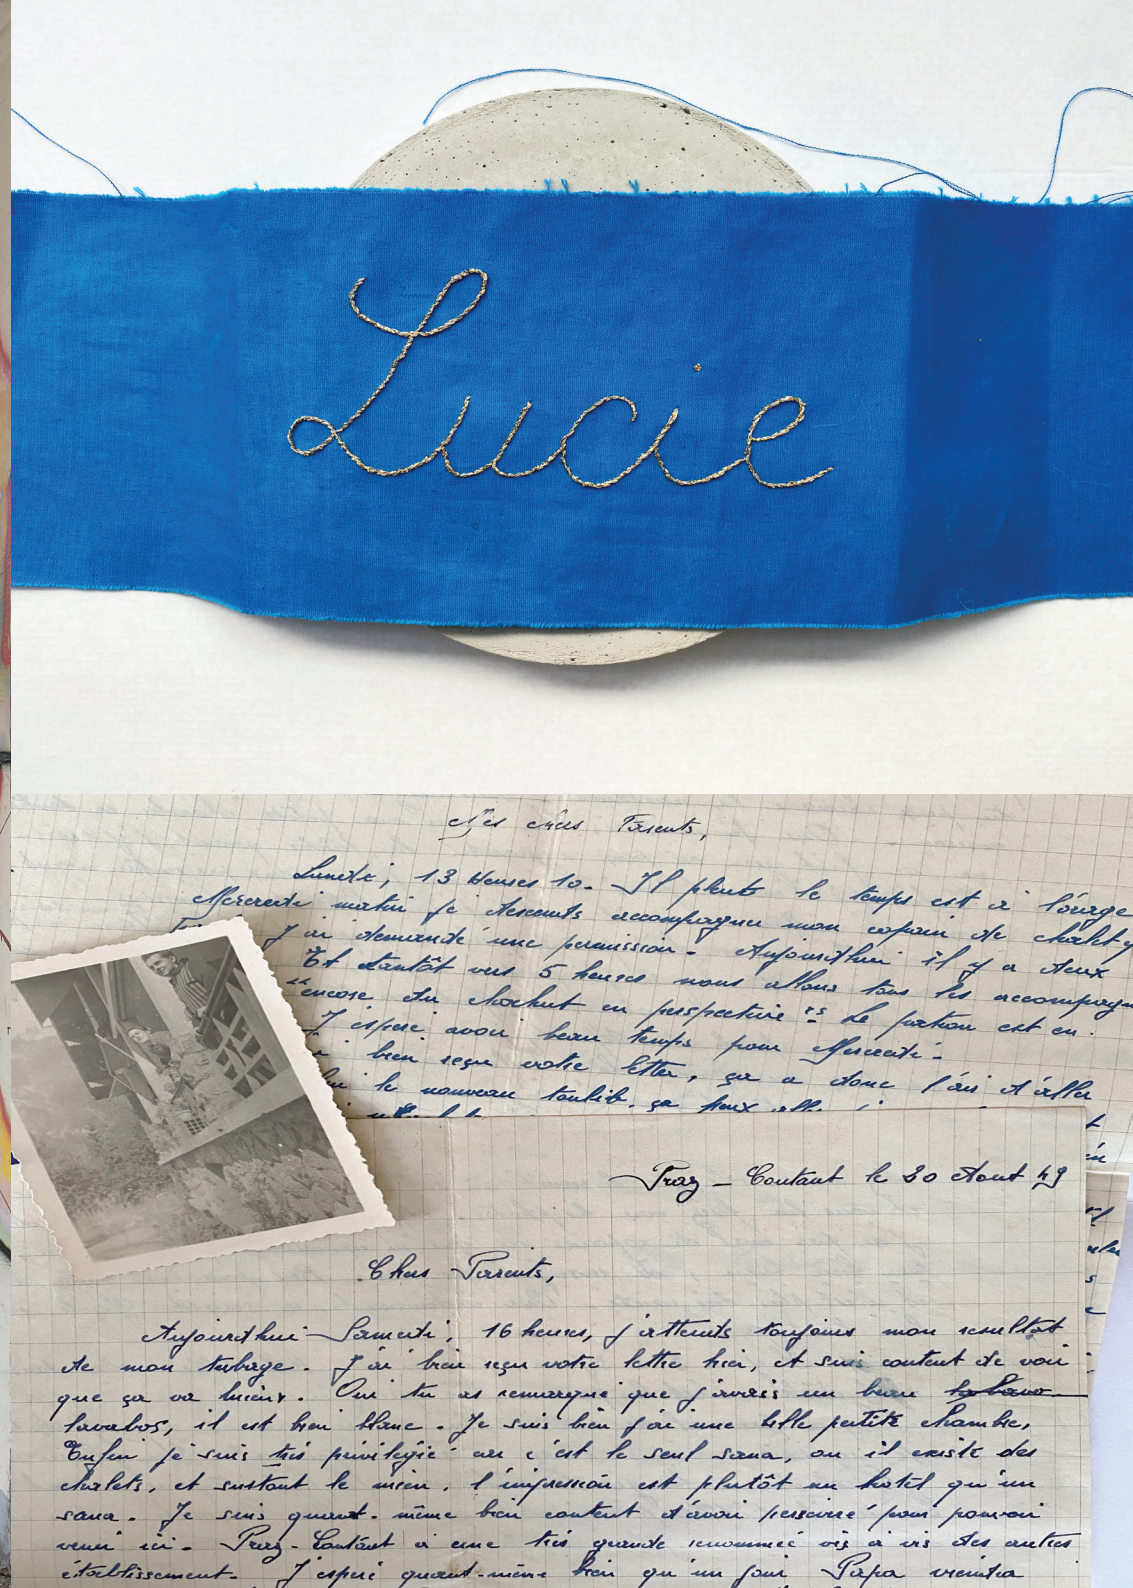 Lucie
Mes chers Parents,
Lundi, 13 Heures 10. Il pleut le temps est à l'orage
Mercredi matin je descends accompagner mon copain de chalet
J'ai demandé une permission. Aujourd'hui il y a deux
Et tantôt vers 5 heures nous allons tous les accompagn
encore du chahut en perspective Le patron est en
J'espère avoir beau temps pour Mercredi.
bien reçu votre lettre, ça a donc l'air d'aller
le nouveau toubib. ça
Praz-Coutant le 20 Aout 49
Chers Parents,
Aujourd'hui Samedi, 16 heures, j'attends toujours mon resultat
de mon tubage. J'ai bien reçu votre lettre hier, et suis content de voir
que ça va mieux. Oui tu as remarqué que j'avais un beau
lavabos, il est bien blanc. Je suis bien j'ai une belle petite chambre,
Enfin je suis très privilégié car c'est le seul sana, ou il existe des
chalets, et surtout le mien, l'impression est plutôt un hotel qu'un
sana. Je suis quand-même bien content d'avoir persévéré pour pouvoir
venir ici. Praz-Coutant a une très grande renommée vis à vis des autres
établissement. J'espère quand-même bien qu'un jour Papa viendra